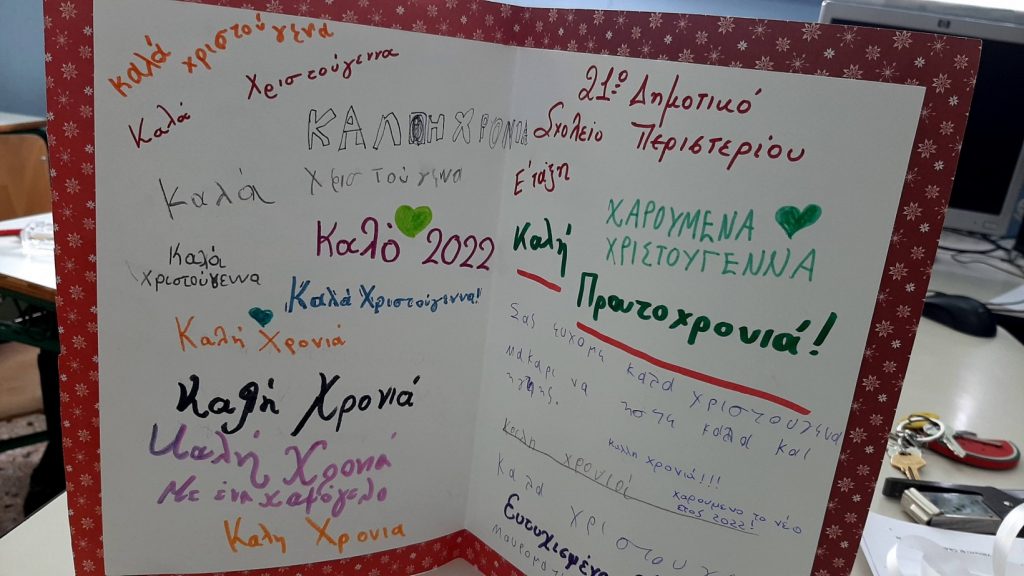 καλά χριστούγενα
Καλά Χριστούγεννα
ΚΑΛΗ ΧΡΟΝΙΑ
Καλά Χριστούγενα
Καλό 2022
Καλά
Χριστούγεννα
Καλά Χριστούγεννα!
Καλή Χρονιά
Καλή Χρονιά
Καλή Χρονιά
Με ένα χαμόγελο
Καλη Χρονια
21ο Δημοτικό
Σχολείο Περιστερίου
Ε' τάξη
ΧΑΡΟΥΜΕΝΑ
ΧΡΙΣΤΟΥΓΕΝΝΑ
Καλή
Πρωτοχρονιά!
Σας ευχομε καλα χριστουγενα
μακαρι να ηστε καλα και
καλη χρονιά!!!
Καλη χρονια
χαρουμενο το νέο
έτος 2022!
καλα χριστουγ
Ευτυχισμένο